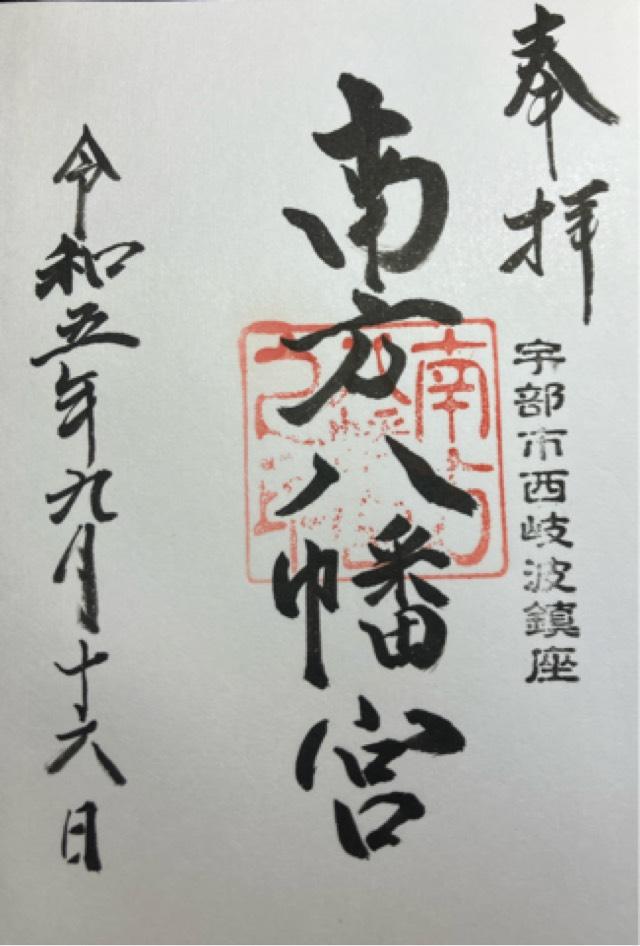 奉拝
宇部市西岐波鎮座
南方八幡宮
令和五年九月十六日